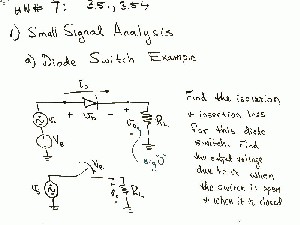 HW# 7: 3.51, 3.54
1) Small Signal Analysis
a) Diode Switch Example
I_D
+ v_D -
+
R_L
V_B
Find the isolation
+ insertion loss
for this diode
switch. Find
the output voltage
due to vs when
the switch is open
+ when it is closed
V_B
v_s
R_L